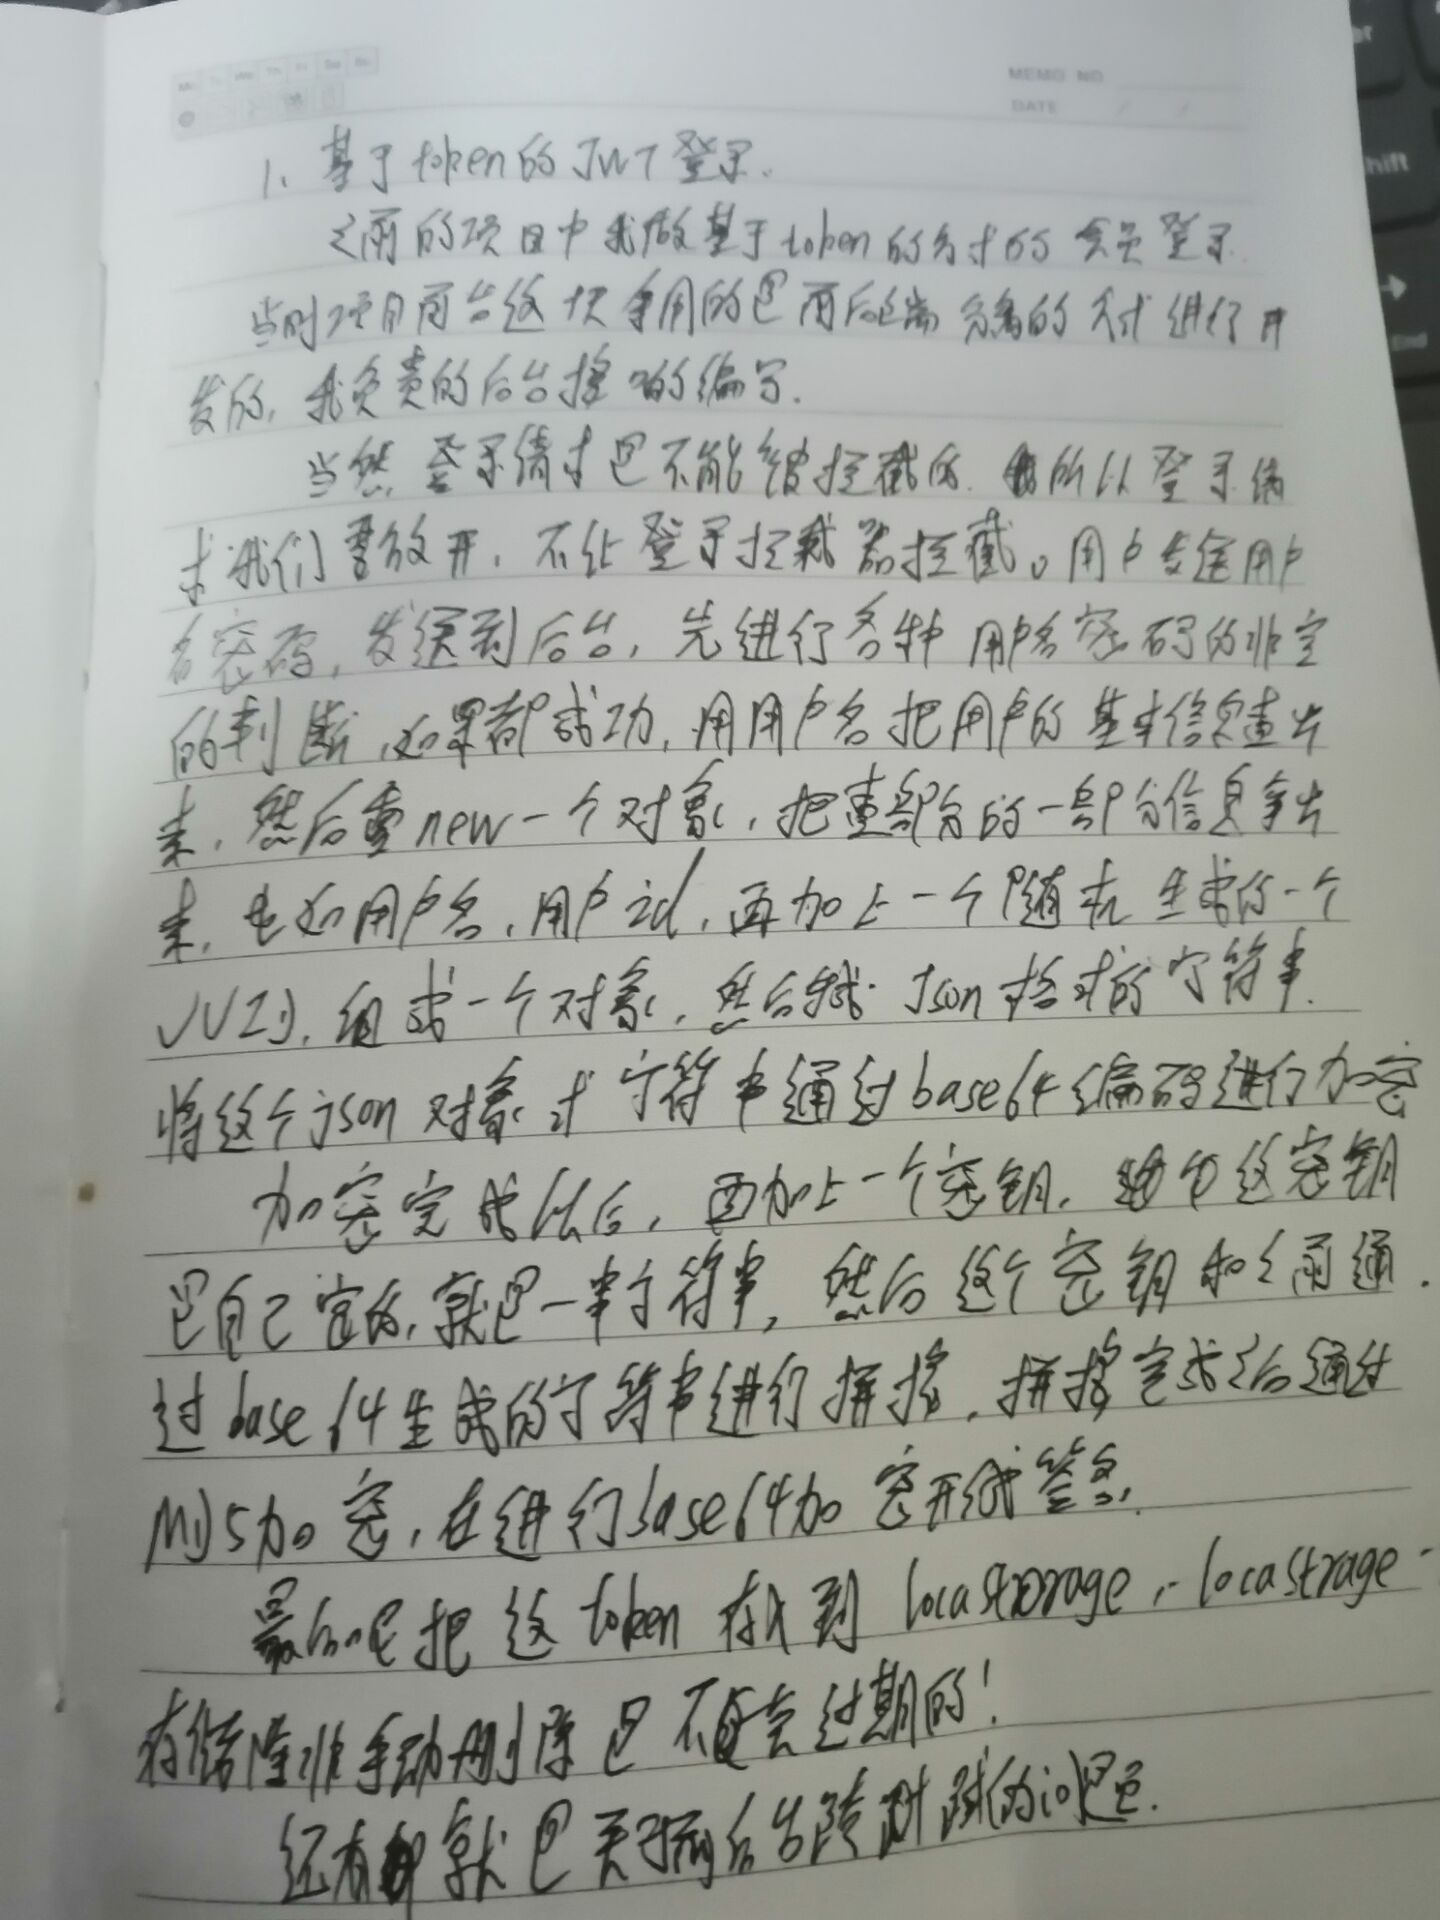 MEMO NO
DATE
1、基于token的JWT登录.
之前的项目中我做基于token的方式的会员登录.
当时项目前台这块采用的是前后端分离的方式进行开
发的,我负责的后台接口的编写.
当然登录请求是不能被拦截的.所以登录请
求我们要放开,不让登录拦截器拦截。用户
名密码,发送到后台,先进行各种用户名密码的非空
的判断,如果都成功,用用户名把用户的基本信息查出
来,然后重new一个对象,把查部分的一部分信息拿出
来,比如用户名,用户id,再加上一个随机生成的一个
UUID,组成一个对象,然后转成json格式的字符串.
将这个json对象式字符串通过base64编码进行加密
加密完成以后,再加上一个密钥,这密钥
是自己定的,就是一串字符串,然后这个密钥和之前通
过base64生成的字符串进行拼接,拼接完成之后通过
MD5加密,在进行base64加密形成签名.
最后呢把这token存入到locastorage,locastrage
存储除非手动删除是不会过期的!
还有就是关于前后台跨域的问题.
Shift
End